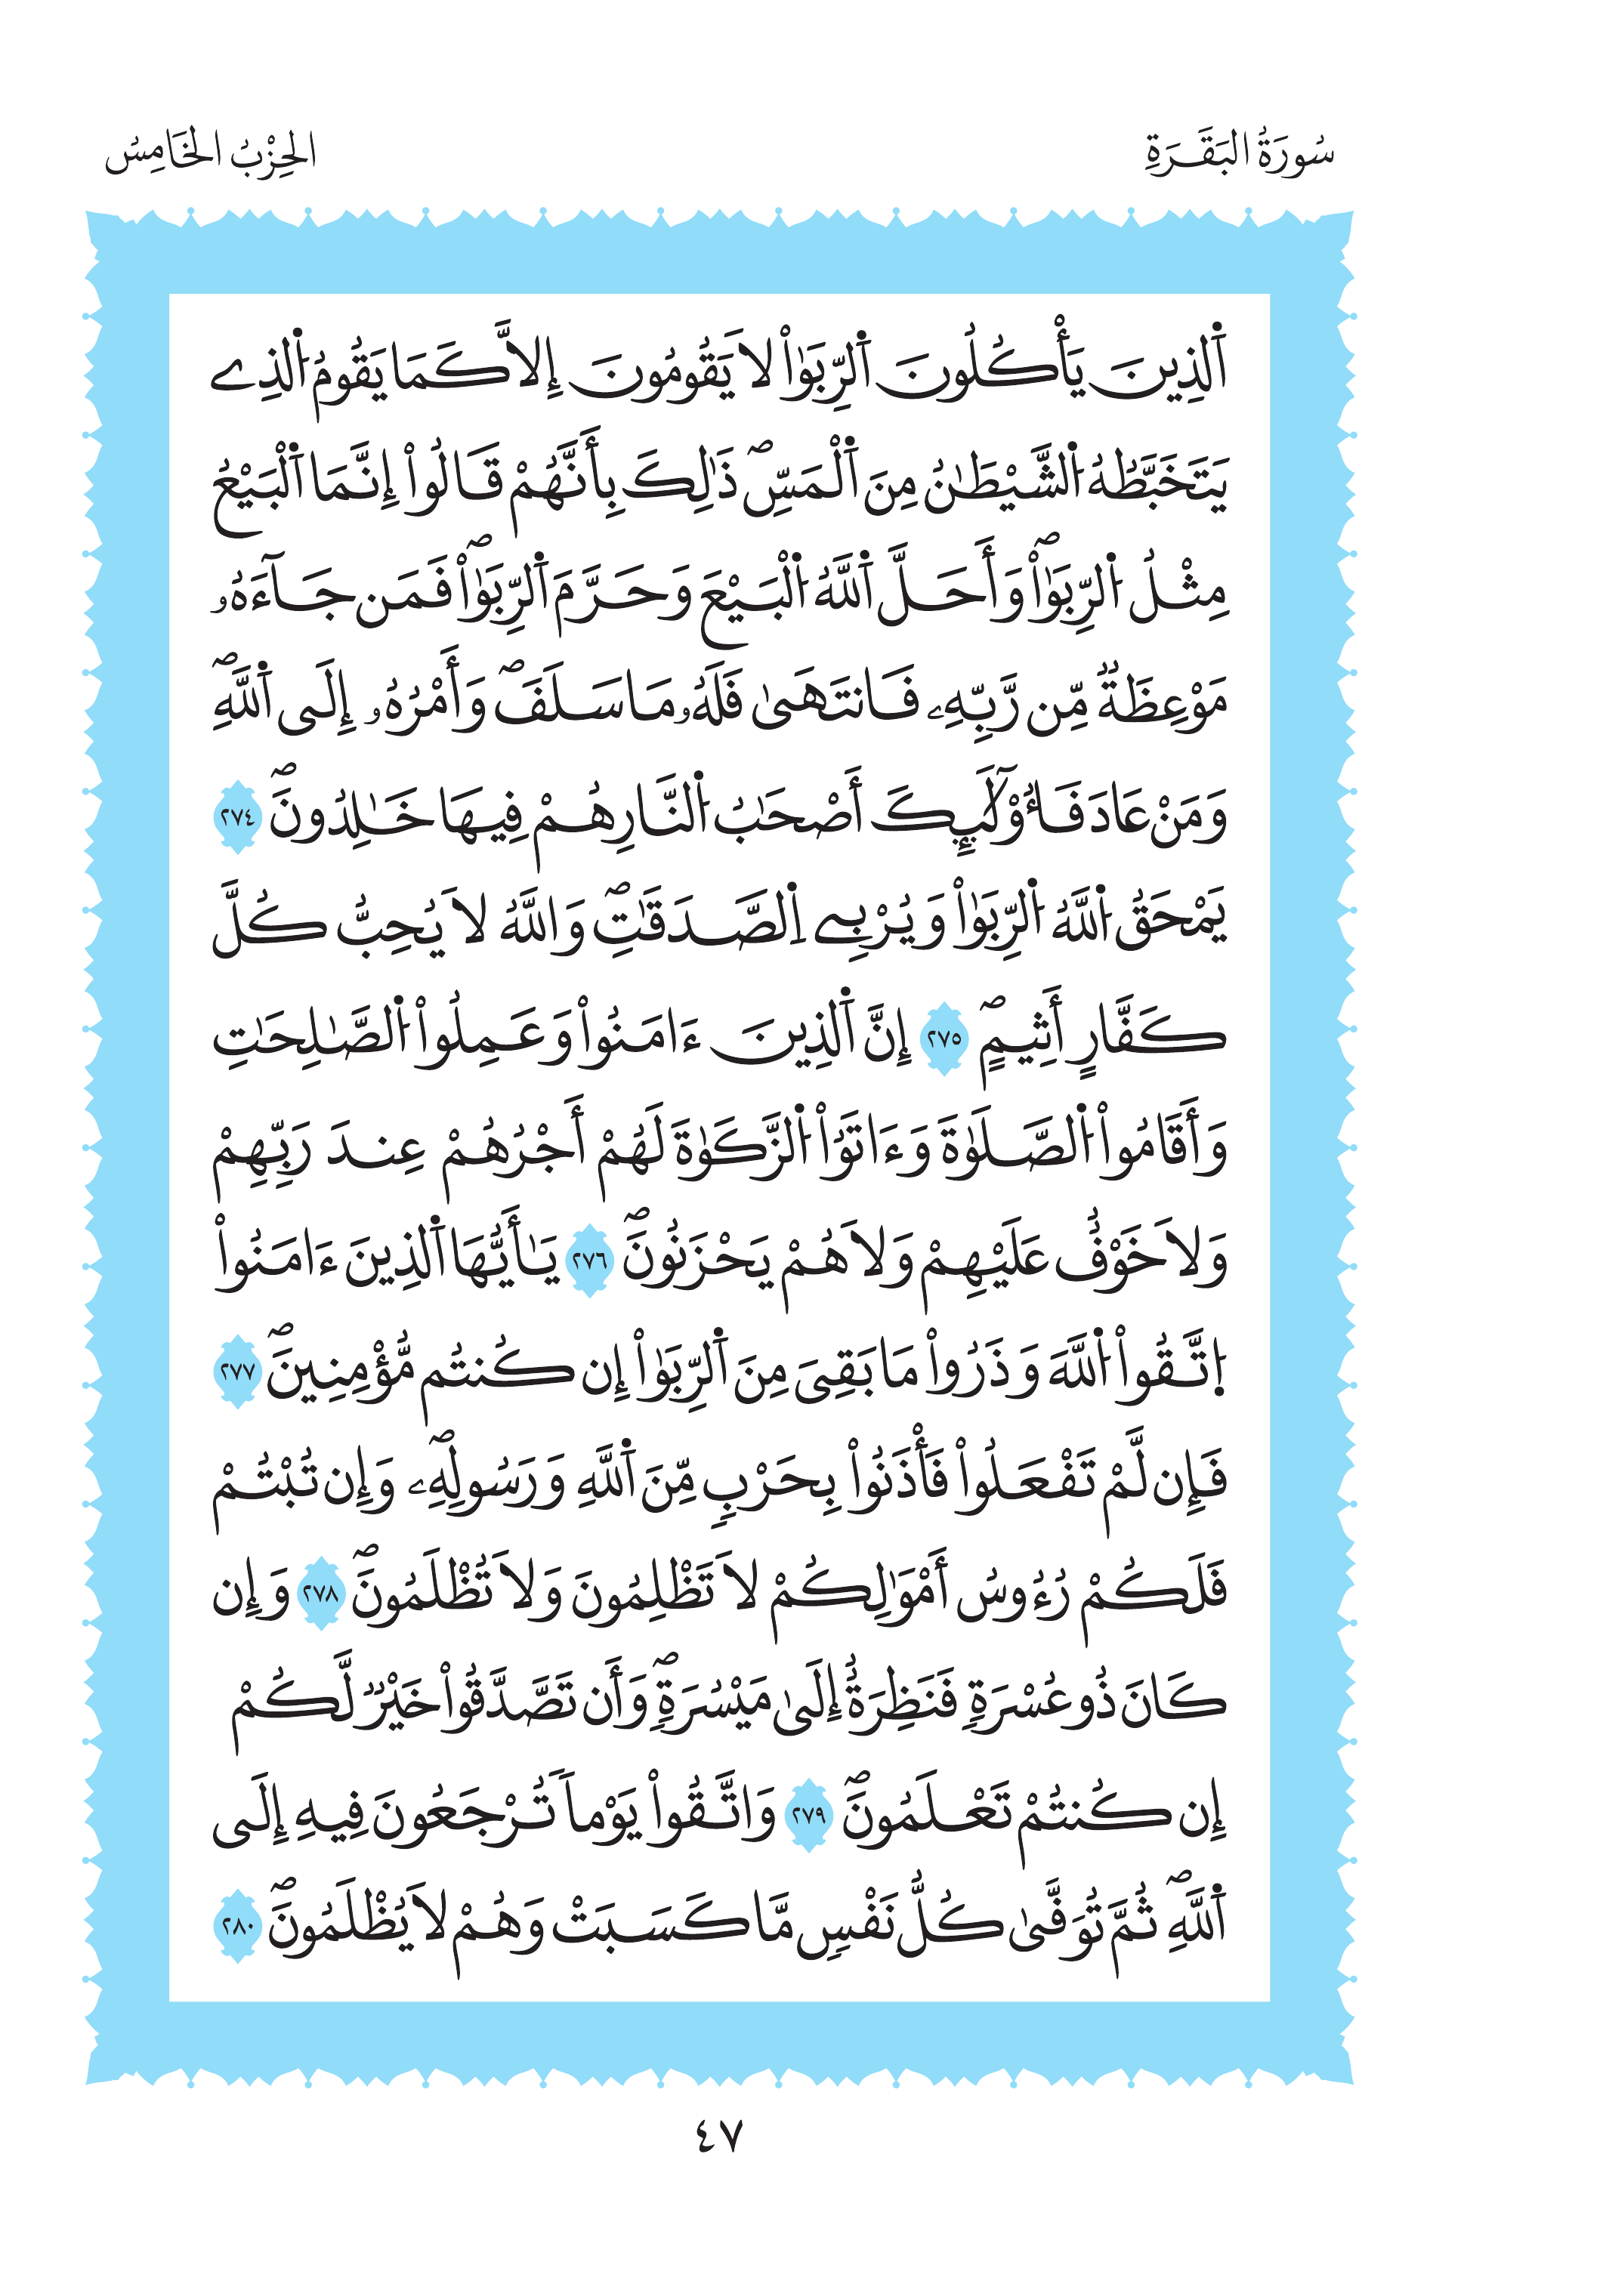 سُورَةُ البَقَرَةِ
الحِزْبُ الخَامِسُ
اَ۬لذِينَ يَأْكُلُونَ اَ۬لرِّبَوٰاْ لَا يَقُومُونَ إِلَّا كَمَا يَقُومُ اُ۬لذِے
يَتَخَبَّطُهُ اُ۬لشَّيْطَٰنُ مِنَ اَ۬لْمَسِّۖ ذَٰلِكَ بِأَنَّهُمْ قَالُواْ إِنَّمَا اَ۬لْبَيْعُ
مِثْلُ اُ۬لرِّبَوٰاْۖ وَأَحَلَّ اَ۬للَّهُ اُ۬لْبَيْعَ وَحَرَّمَ اَ۬لرِّبَوٰاْۖ فَمَن جَآءَهُۥ
مَوْعِظَةٌ مِّن رَّبِّهِۦ فَانتَهَىٰ فَلَهُۥ مَا سَلَفَۖ وَأَمْرُهُۥ إِلَى اَ۬للَّهِۖ
وَمَنْ عَادَ فَأُوْلَٰٓئِكَ أَصْحَٰبُ اُ۬لنَّارِ هُمْ فِيهَا خَٰلِدُونَۖ ٢٧٤
يَمْحَقُ اُ۬للَّهُ اُ۬لرِّبَوٰاْ وَيُرْبِے اِ۬لصَّدَقَٰتِۖ وَاللَّهُ لَا يُحِبُّ كُلَّ
كَفَّارٍ أَثِيمٍۖ ٢٧٥ إِنَّ اَ۬لذِينَ ءَامَنُواْ وَعَمِلُواْ اُ۬لصَّٰلِحَٰتِ
وَأَقَامُواْ اُ۬لصَّلَوٰةَ وَءَاتَوُاْ اُ۬لزَّكَوٰةَ لَهُمْ أَجْرُهُمْ عِندَ رَبِّهِمْ
وَلَا خَوْفٌ عَلَيْهِمْ وَلَا هُمْ يَحْزَنُونَۖ ٢٧٦ يَٰأَيُّهَا اَ۬لذِينَ ءَامَنُواْ
اُ۪تَّقُواْ اُ۬للَّهَ وَذَرُواْ مَا بَقِيَ مِنَ اَ۬لرِّبَوٰاْ إِن كُنتُم مُّؤْمِنِينَۖ ٢٧٧
فَإِن لَّمْ تَفْعَلُواْ فَأْذَنُواْ بِحَرْبٍ مِّنَ اَ۬للَّهِ وَرَسُولِهِۦۖ وَإِن تُبْتُمْ
فَلَكُمْ رُءُوسُ أَمْوَٰلِكُمْ لَا تَظْلِمُونَ وَلَا تُظْلَمُونَۖ ٢٧٨ وَإِن
كَانَ ذُو عُسْرَةٍ فَنَظِرَةٌ إِلَىٰ مَيْسُرَةٍۖ وَأَن تَصَّدَّقُواْ خَيْرٌ لَّكُمْ
إِن كُنتُمْ تَعْلَمُونَۖ ٢٧٩ وَاتَّقُواْ يَوْماً تُرْجَعُونَ فِيهِ إِلَى
اَ۬للَّهِۖ ثُمَّ تُوَفَّىٰ كُلُّ نَفْسٍ مَّا كَسَبَتْ وَهُمْ لَا يُظْلَمُونَۖ ٢٨٠
٤٧